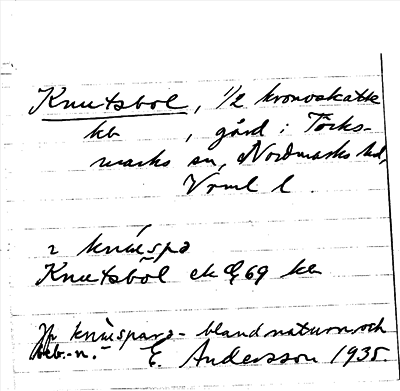 Knutsbol, 1/2 kronoskatte
hb , gård i Töcks-
marks sn, Nordmarks hd,
Värml l.
Knutsböl ek 69
jfr knùspara- bland naturn. och
beb.-n. E. Andersson 1935.